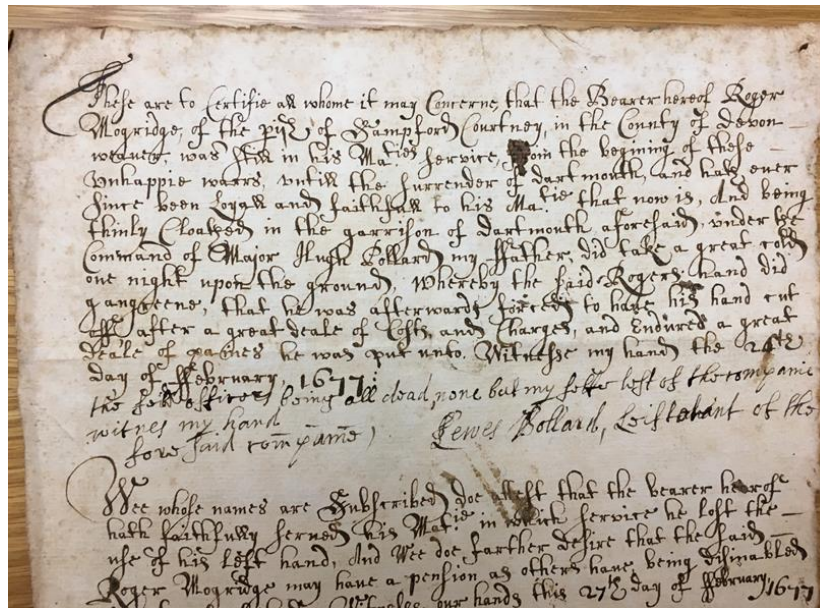 These are to Certifie all whome it may Concerne, that the Bearer hereof Roger
Mogridge, of the pish of Sampford Courtney, in the County of Devon
weaver, was still in his Ma:ties service, from the begining of these
Unhappie warrs, untill the surrender of dartmouth, and hath ever
since been Loyall and faithfull to his Ma:tie that now is, And being
thinly Cloathed in the garrison of dartmouth aforesaid, under the
Command of Major Hugh Pollard my ffather, did take a great cold
one night upon the ground, Whereby the said Rogers hand did
gangreene, that he was afterwards forced to have his hand cut
off after a great deale of Costs, and Charges, and Endured a great
deale of paines he was put unto. Witnesse my hand the
day of ffebruary, 1677:
the officers being all dead, none but my selfe left of the companie
witnes my hand
Lewes Pollard, Leiftenant of the
fore said companie,
Wee whose names are Subscribed doe attest that the bearer hearof
hath faithfully served his Mat:ie in which service he lost the
use of his left hand, And Wee doe farther desire that the said
Roger Mogridge may have a pension as others have being disinabled
our hands this 27th day of ffebruary, 1677